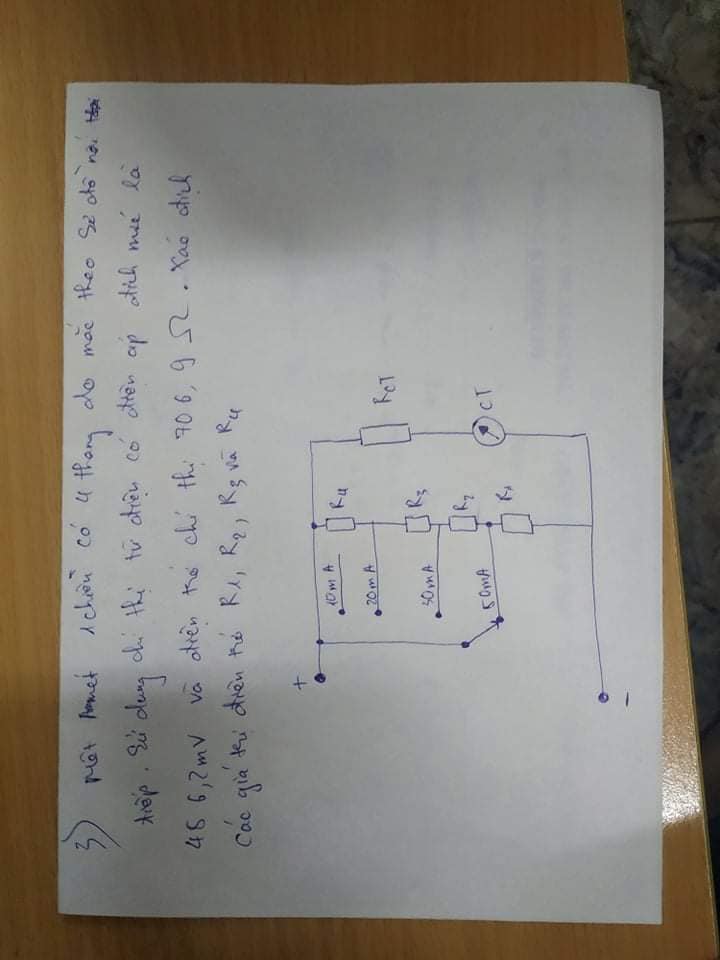 3) Một Ampemét 1 chiều có 4 thang đo mắc theo sơ đồ nối
tiếp. Sử dụng chỉ thị từ điện có điện áp định mức là
456,2mV và điện trở chỉ thị 706,9 Ω. Xác định
các giá trị điện trở R1, R2, R3 và R4
+
10mA
R4
RCT
20mA
R3
30mA
R2
CT
50mA
R1
-